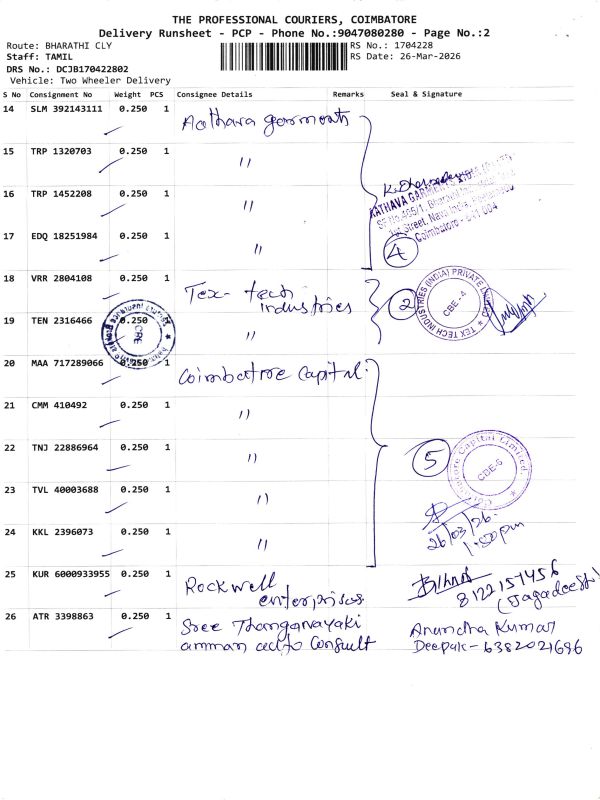 THE PROFESSIONAL COURIERS, COIMBATORE
Delivery Runsheet - PCP - Phone No.:9047080280 - Page No.:2
Route: BHARATHI CLY
RS No.: 1704228
Staff: TAMIL
RS Date: 26-Mar-2026
DRS No.: DCJB170422802
Vehicle: Two Wheeler Delivery
S No Consignment No Weight PCS Consignee Details Remarks Seal & Signature
14 SLM 392143111 0.250 1 Aathava garments
15 TRP 1320703 0.250 1 "
16 TRP 1452208 0.250 1 "
17 EDQ 18251984 0.250 1 "
KATHAVA GARMENTS
Coimbatore
4
18 VRR 2804108 0.250 1 Tex-tech industries
2
TEX TECH INDUSTRIES (INDIA) PRIVATE LIMITED
CBE-4
19 TEN 2316466 0.250 1 "
CBE
20 MAA 717289066 0.250 1 Coimbatore Capital.
21 CMM 410492 0.250 1 "
22 TNJ 22886964 0.250 1 "
5
Coimbatore Capital Limited.
23 TVL 40003688 0.250 1 "
26/03/26.
1:50pm
24 KKL 2396073 0.250 1 "
25 KUR 6000933955 0.250 1 Rockwell enterprises
8122157456
(Jagadeesh)
26 ATR 3398863 0.250 1 Sree Thanganayaki
amman Consult
Anandha Kumar
Deepak-6382021696